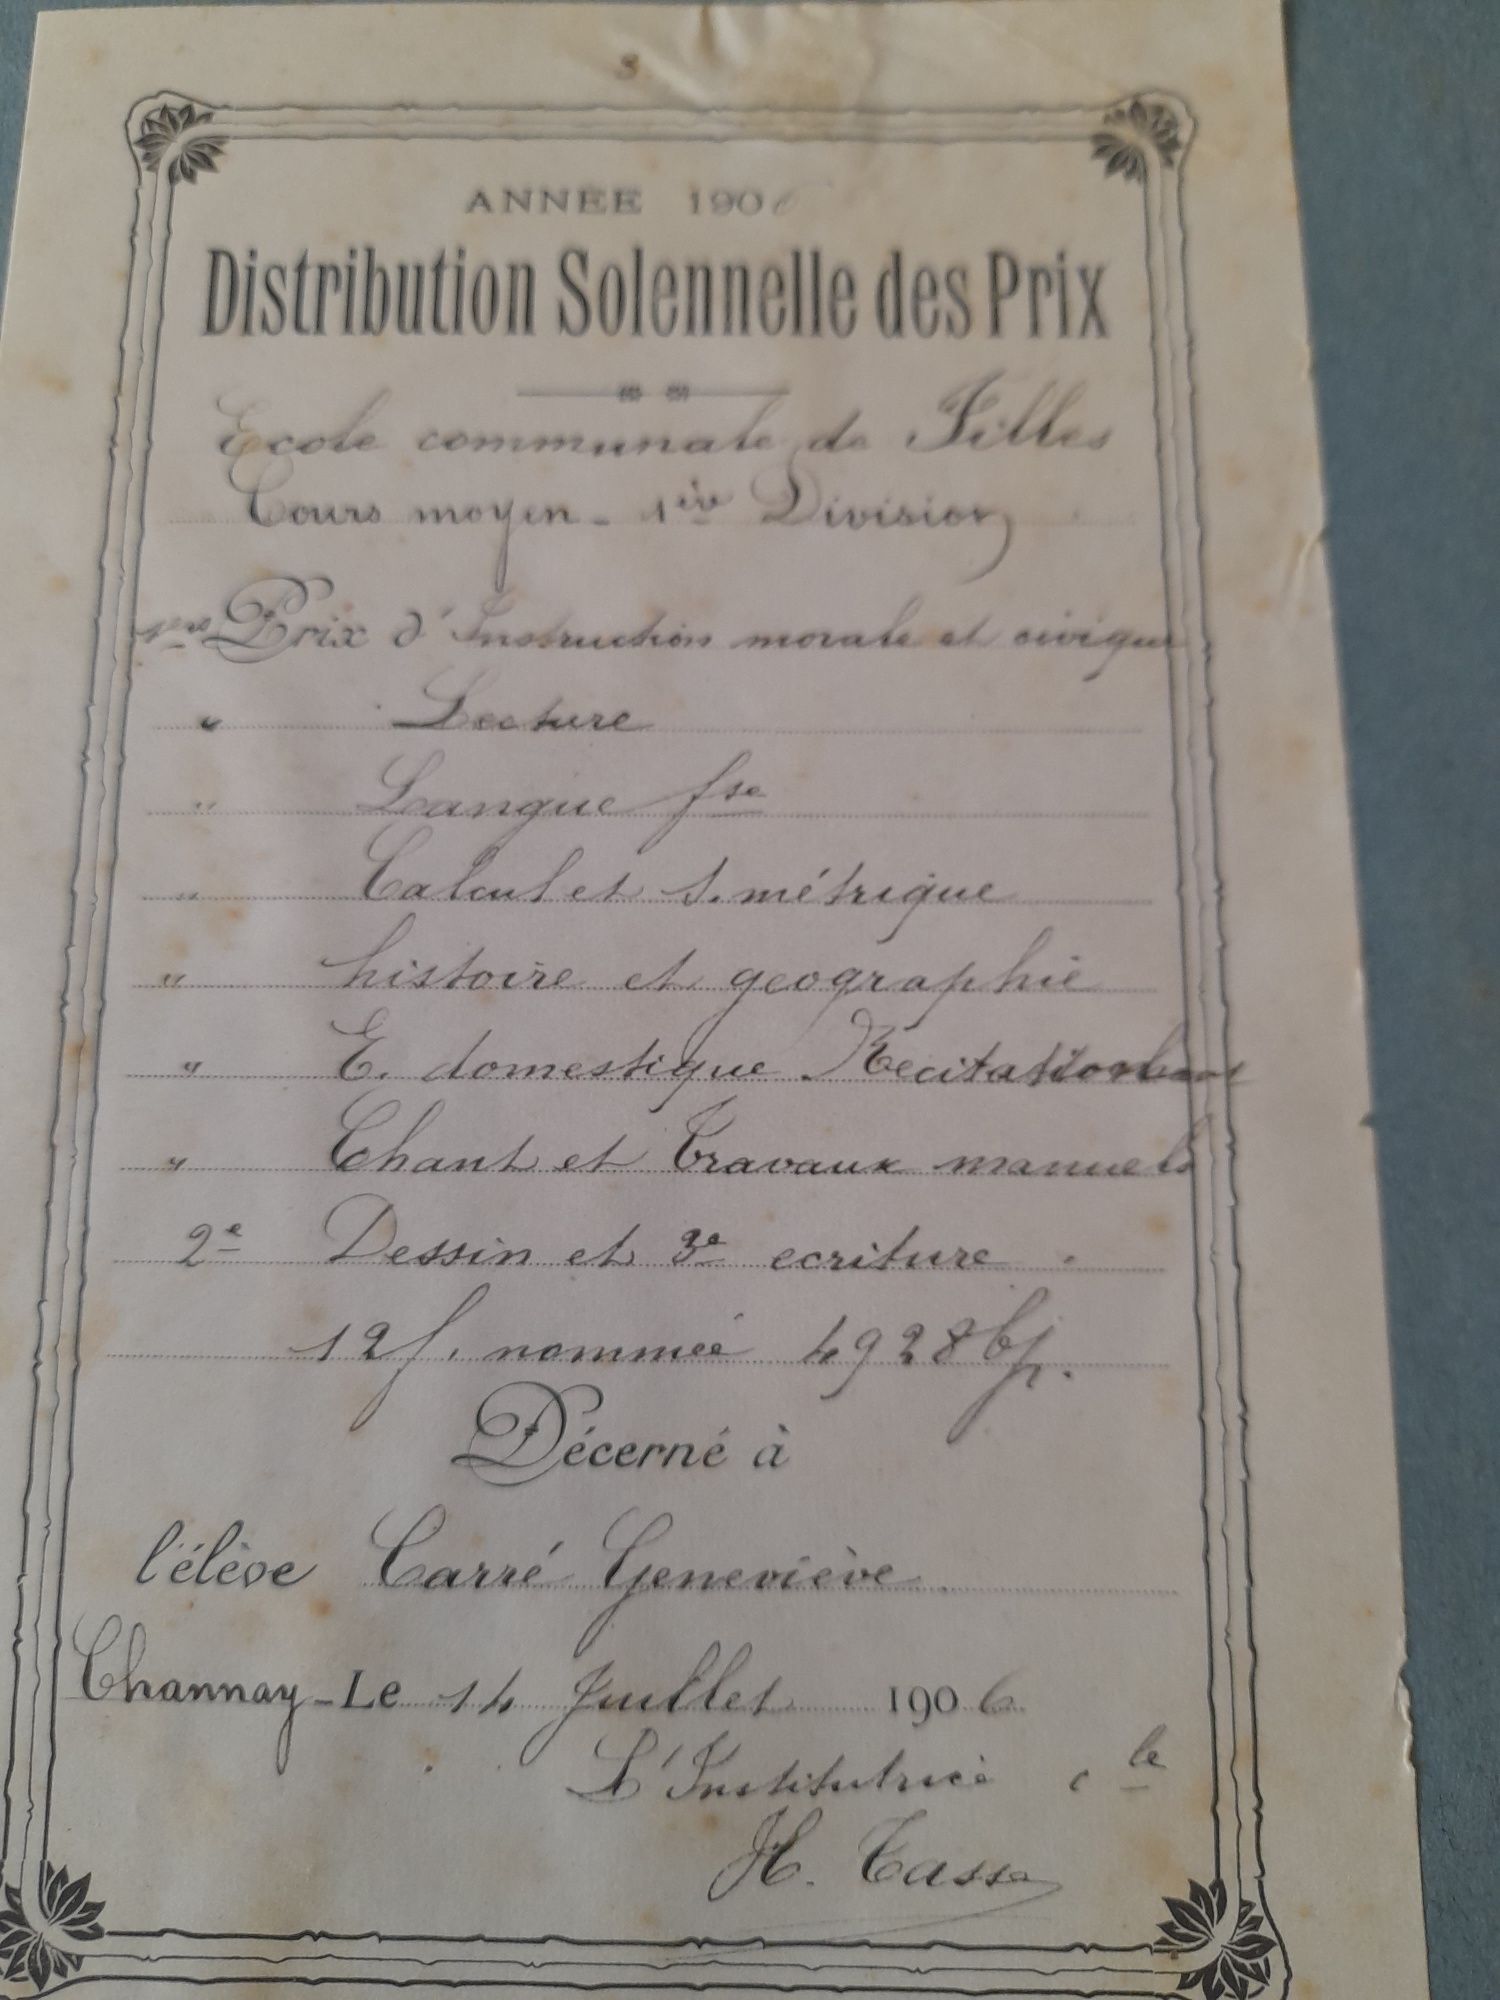 ANNÉE 1906
Distribution Solennelle des Prix
Ecole communale de Filles
Cours moyen - 1ère Division
1ers Prix d'Instruction morale et civique
" Lecture
" Langue fse
" Calcul et s. métrique
" histoire et geographie
" E. domestique Recitation
" Chant et Travaux manuels
2e Dessin et 3e ecriture.
12 f. nommée 4928 bp.
Décerné à
l'élève Carré Geneviève
Channay - Le 14 Juillet 1906
L'Institutrice cle
H. Tasse